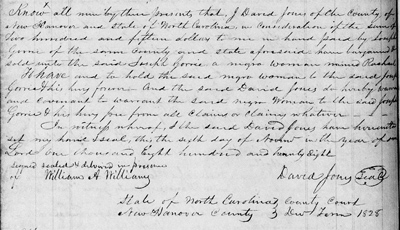 Know all men by these presents that I David Jones of the County of
New Hanover and State of North Carolina in Consideration of the sum of
two hundred and fifteen dollars to me in hand paid by Joseph
of the same County and state aforesaid have bargained &
sold unto the said Joseph a negro woman named Rachael
To have and to hold the said negro woman to the said Joseph
his heirs forever And the said David Jones do hereby warrant
and covenant to warrant the said negro Woman to the said Joseph
& his heirs free from all Claims or Claims whatever
In witness whereof, I the said David Jones have hereunto
set my hand & seal, this the sixth day of Novem in the year of our
Lord One thousand Eight hundred and twenty Eight
signed sealed & delivered in presence
of William A Williams David Jones Seal
State of North Carolina } County Court
New Hanover County } Term 1828